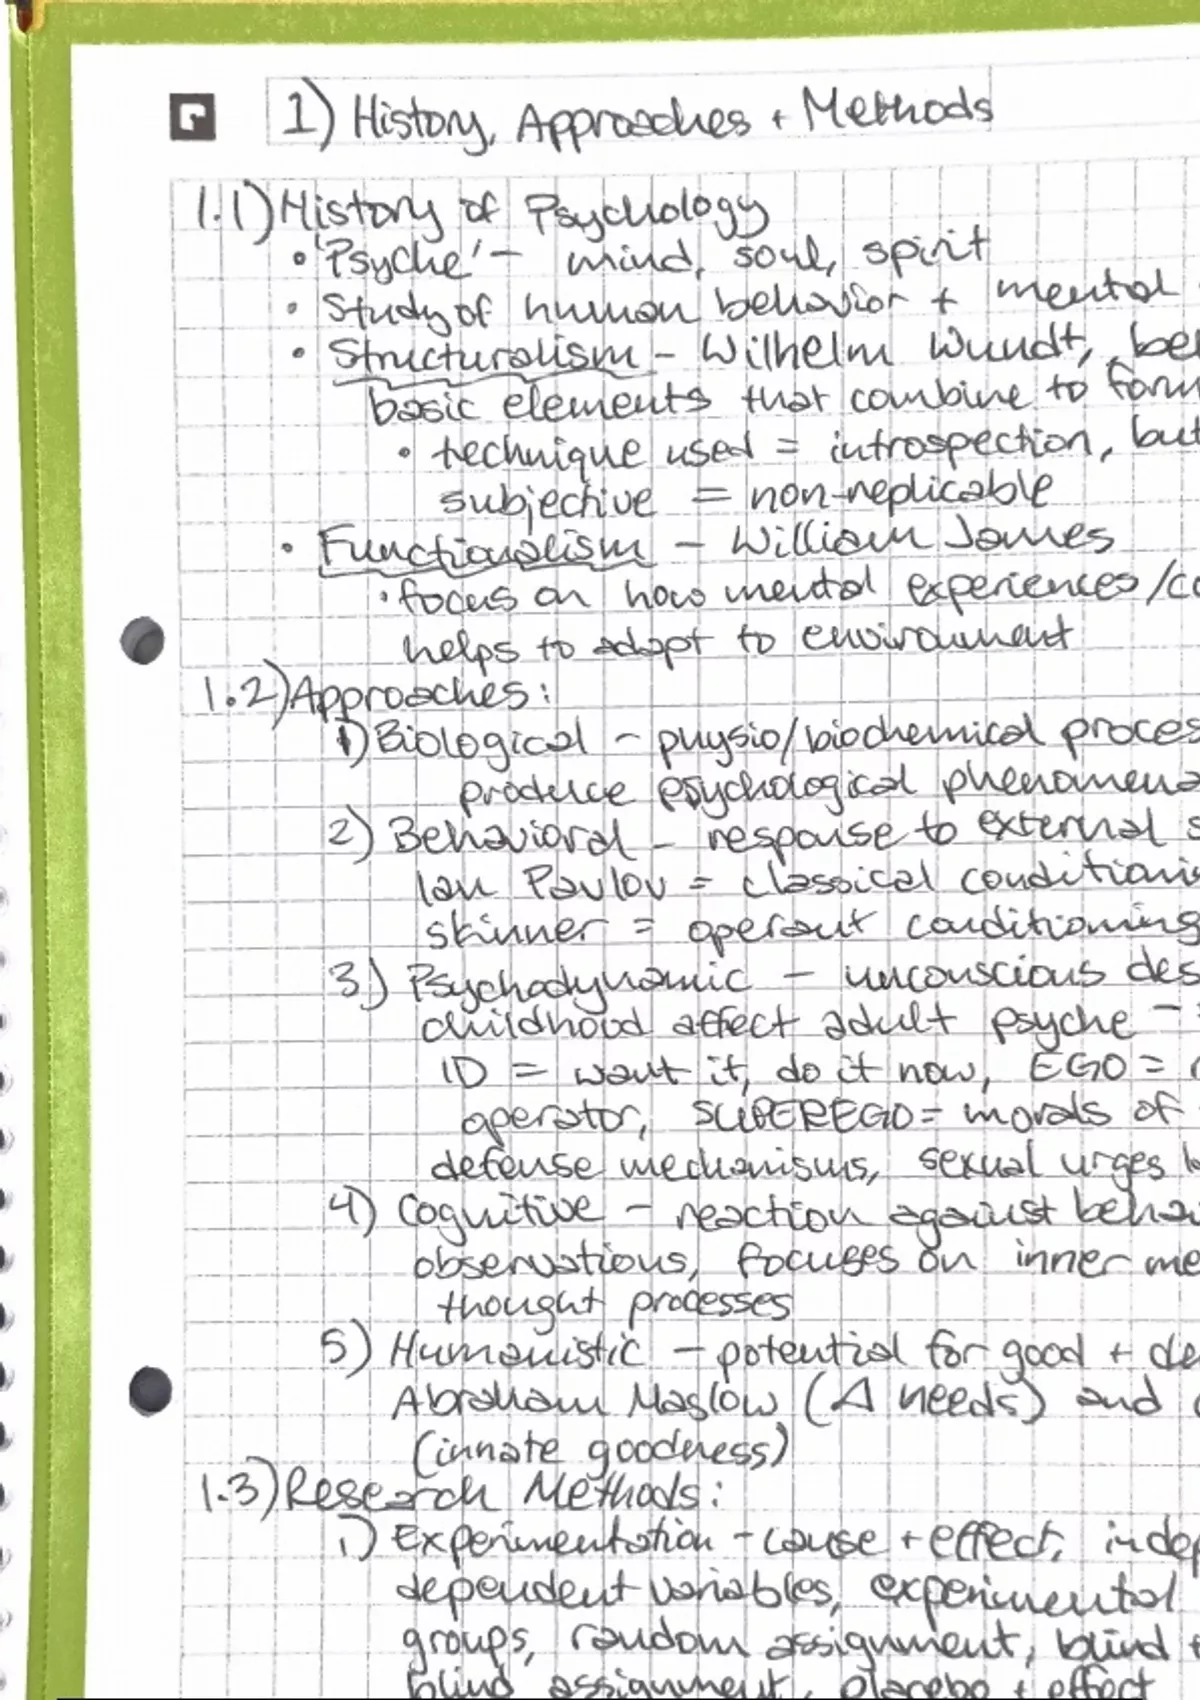 1) History, Approaches + Methods
1.1) History of Psychology
• 'Psyche' – mind, soul, spirit
• Study of human behavior + mental
• Structuralism – Wilhelm Wundt, bel
basic elements that combine to form
• technique used = introspection, but
subjective = non-replicable
• Functionalism – William James
• focus on how mental experiences/co
helps to adapt to environment
1.2) Approaches:
1) Biological – physio/biochemical proces
produce psychological phenomena
2) Behavioral – response to external s
Ian Pavlov = classical conditioning
skinner = operant conditioning
3) Psychodynamic – unconscious des
childhood affect adult psyche –
ID = want it, do it now, EGO =
operator, SUPEREGO = morals of
defense mechanisms, sexual urges
4) Cognitive – reaction against behavi
observations, focuses on inner me
thought processes
5) Humanistic – potential for good + de
Abraham Maslow (Δ needs) and
(innate goodness)
1.3) Research Methods:
1) Experimentation – cause + effect, indep
dependent variables, experimental
groups, random assignment, blind
blind assignment, placebo + effect